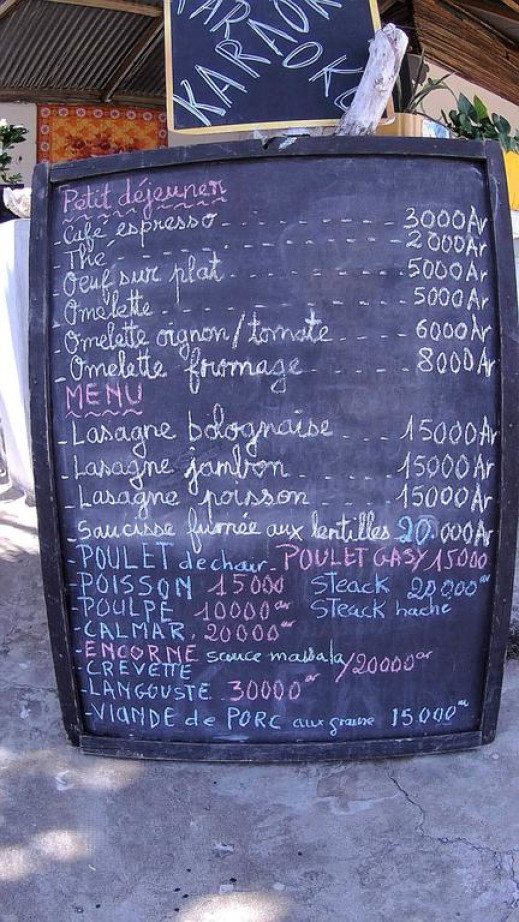 KARAOKE
KARAOKE
Petit déjeuner
- Café espresso ---- 3000Ar
- Thé ---- 2000Ar
- Oeuf sur plat ---- 5000Ar
- Omelette ---- 5000Ar
- Omelette oignon/tomate ---- 6000Ar
- Omelette fromage ---- 8000Ar
MENU
- Lasagne bolognaise ---- 15000Ar
- Lasagne jambon ---- 15000Ar
- Lasagne poisson ---- 15000Ar
- Saucisse fumée aux lentilles 20.000Ar
- POULET de chair - POULET GASY 15000
- POISSON 15000 Steack 20.000ar
- POULPE 10000ar Steack haché
- CALMAR, 20000ar
- ENCORNE sauce massala/20000ar
- CREVETTE
- LANGOUSTE 30000ar
- VIANDE de PORC aux 15000ar